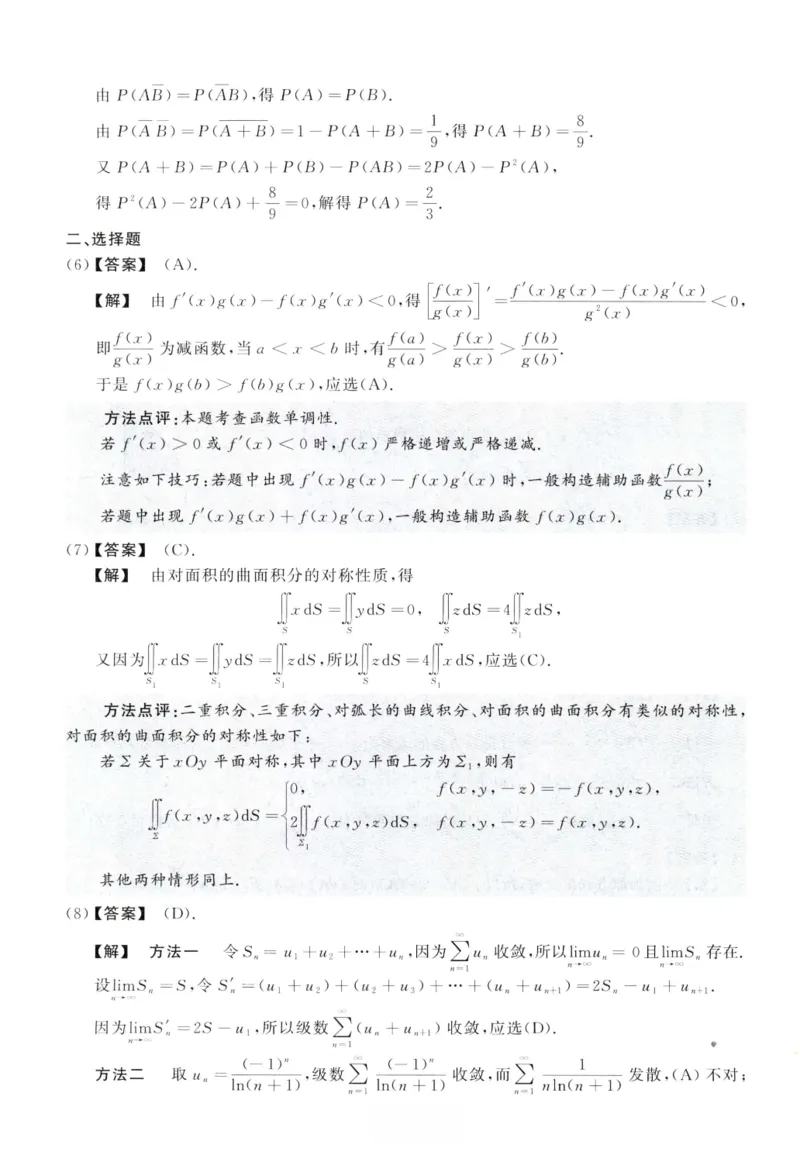 由 P(AB̅)=P(A̅B),得 P(A)=P(B).
由 P(A̅ B̅)=P(\overline{A+B})=1-P(A+B)=\frac{1}{9},得 P(A+B)=\frac{8}{9}.
又 P(A+B)=P(A)+P(B)-P(AB)=2P(A)-P²(A),
得 P²(A)-2P(A)+\frac{8}{9}=0,解得 P(A)=\frac{2}{3}.
二、选择题
(6)【答案】 (A).
【解】 由 f′(x)g(x)-f(x)g′(x)<0,得[\frac{f(x)}{g(x)}]′=\frac{f′(x)g(x)-f(x)g′(x)}{g²(x)}<0,
即\frac{f(x)}{g(x)}为减函数,当 a<x<b 时,有\frac{f(a)}{g(a)}>\frac{f(x)}{g(x)}>\frac{f(b)}{g(b)}.
于是 f(x)g(b)>f(b)g(x),应选(A).
方法点评:本题考查函数单调性.
若 f′(x)>0或 f′(x)<0时,f(x)严格递增或严格递减.
注意如下技巧:若题中出现 f′(x)g(x)-f(x)g′(x)时,一般构造辅助函数\frac{f(x)}{g(x)};
若题中出现 f′(x)g(x)+f(x)g′(x),一般构造辅助函数 f(x)g(x).
(7)【答案】 (C).
【解】 由对面积的曲面积分的对称性质,得
∬_S xdS=∬_S ydS=0, ∬_S zdS=4∬_{S₁} zdS,
又因为∬_{S₁} xdS=∬_{S₁} ydS=∬_{S₁} zdS,所以∬_S zdS=4∬_{S₁} xdS,应选(C).
方法点评:二重积分、三重积分、对弧长的曲线积分、对面积的曲面积分有类似的对称性,
对面积的曲面积分的对称性如下:
若 Σ 关于 xOy 平面对称,其中 xOy 平面上方为 Σ₁,则有
∬_Σ f(x,y,z)dS={0, f(x,y,-z)=-f(x,y,z),
2∬_{Σ₁} f(x,y,z)dS, f(x,y,-z)=f(x,y,z).
其他两种情形同上.
(8)【答案】 (D).
【解】 方法一 令 Sₙ=u₁+u₂+⋯+uₙ,因为∑_{n=1}^{∞}uₙ 收敛,所以\lim_{n→∞}uₙ=0且\lim_{n→∞}Sₙ 存在.
设\lim_{n→∞}Sₙ=S,令 S′ₙ=(u₁+u₂)+(u₂+u₃)+⋯+(uₙ+uₙ₊₁)=2Sₙ-u₁+uₙ₊₁.
因为\lim_{n→∞}S′ₙ=2S-u₁,所以级数∑_{n=1}^{∞}(uₙ+uₙ₊₁)收敛,应选(D).
方法二 取 uₙ=\frac{(-1)ⁿ}{ln(n+1)},级数∑_{n=1}^{∞}\frac{(-1)ⁿ}{ln(n+1)}收敛,而∑_{n=1}^{∞}\frac{1}{nln(n+1)}发散,(A)不对;